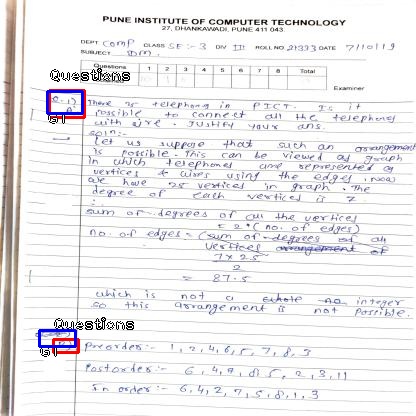 PUNE INSTITUTE OF COMPUTER TECHNOLOGY
27, DHANKAWADI, PUNE 411 043.
DEPT Comp CLASS SE:-3 DIV III ROLL NO 21333 DATE 7/10/19
SUBJECT DM.
Questions 1 2 3 4 5 6 7 8 Total
Examiner
Questions
Q-1)
A)
GT
There 25 telephong in PICT. Is it
possible to connect all the telephones
with wire. Justify your ans.
soln:-
Let us suppose that such an arrangement
is possible. This can be viewed as graph
in which telephones are represented as
vertices & wires using the edges. now
we have 25 vertices in graph. The
degree of each vertices is 7.
∴
sum of degrees of all the vertices
= 2*(no. of edges)
no. of edges = (sum of degrees of all
vertices arrangement of
7 x 25
2
= 87.5
which is not a whole no integer
so this arrangement is not possible.
Questions
GT
Preorder:- 1, 2, 4, 6, 5, 7, 8, 3
Postorder:- 6, 4, 7, 8, 5, 2, 3, 11
In order:- 6, 4, 2, 7, 5, 8, 1, 3